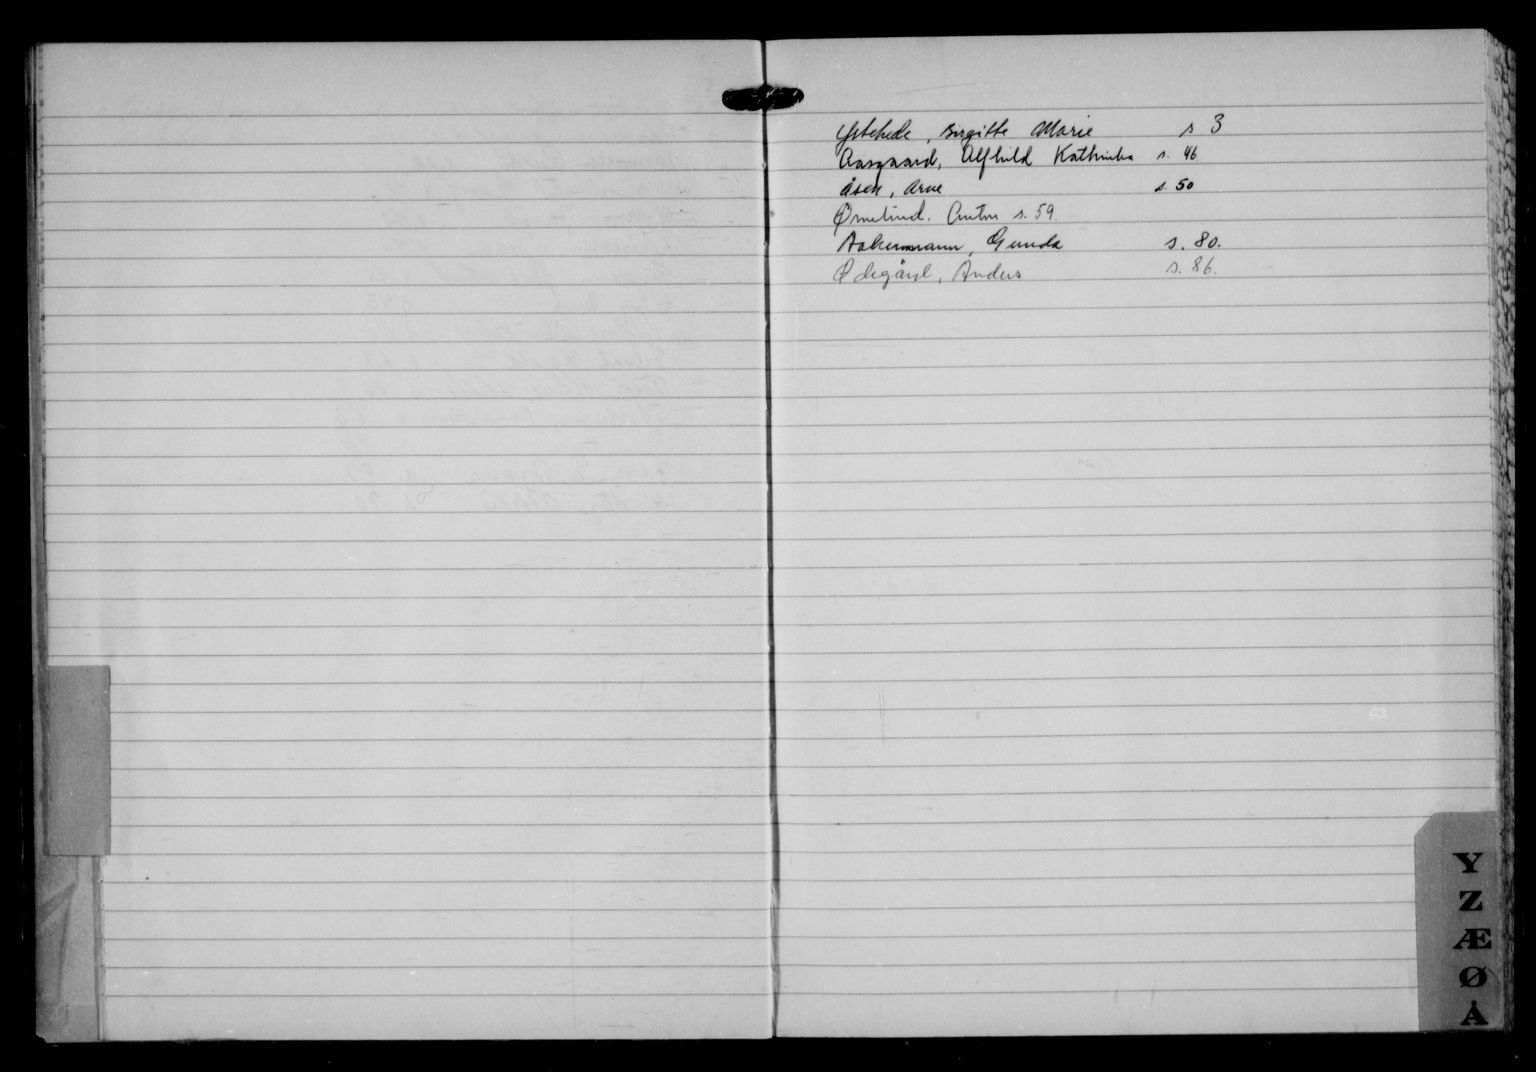 Ystehede, Birgitte Marie s 3
Aasgaard, Alfhild Kathinka s. 46
Åsen, Arne s. 50
Ørnelund. Anton s. 59.
Aakermann, Gunda s. 80.
Ødegård, Anders s. 86.
Y
Z
Æ
Ø
Å